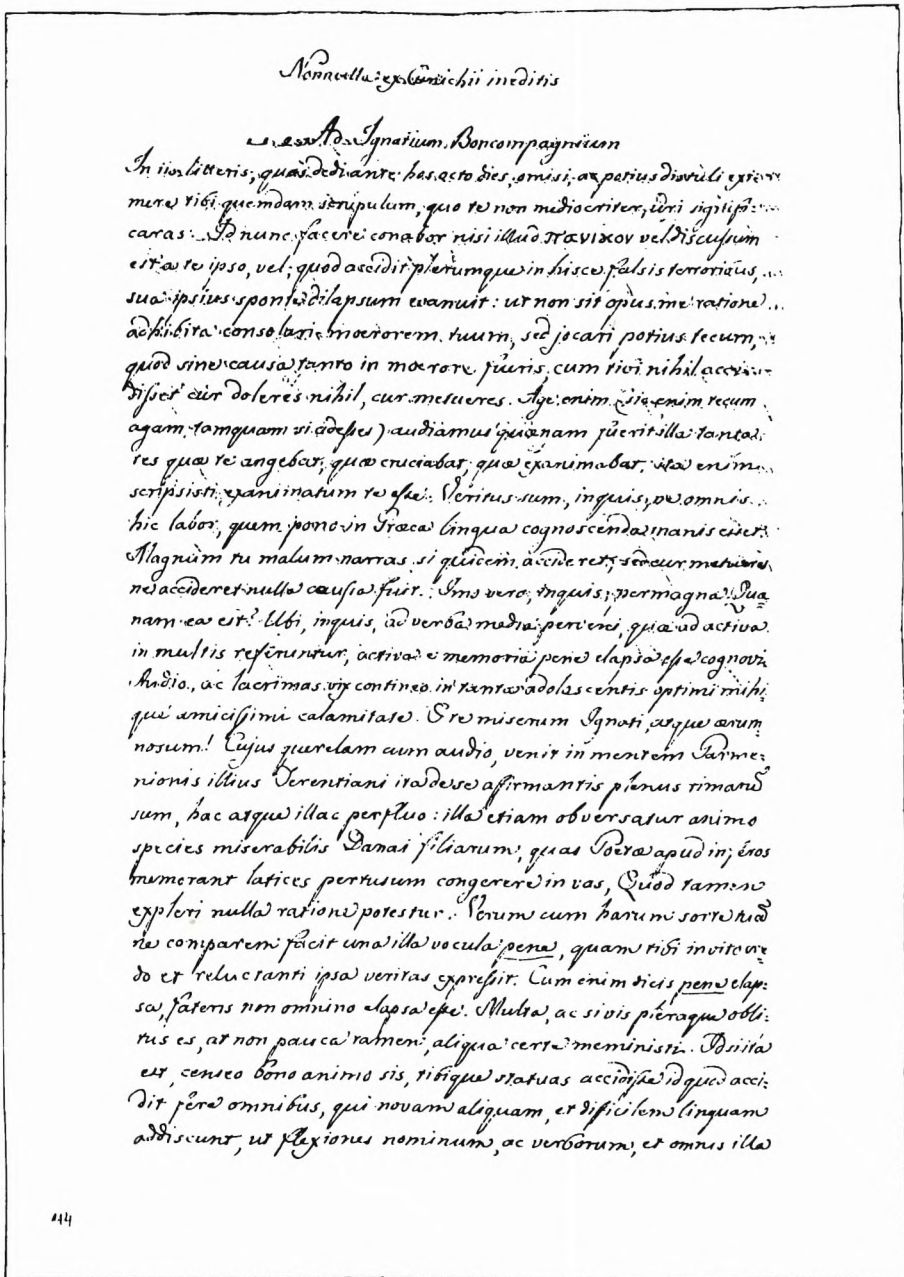 Nonnulla ex Cunichii ineditis
Ad Ignatium Boncompagnium
In iis litteris, quas dedi ante hos octo dies, omisi, ac potius distuli exi-
mere tibi quemdam scrupulum, quo te non mediocriter, uri signifi-
caras. Id nunc facere conabor nisi illud πανικον vel discussum
est a te ipso, vel, quod accidit plerumque in hisce falsis terroribus,
sua ipsius sponte dilapsum evanuit: ut non sit opus me ratione
adhibita consolari moerorem tuum, sed jocari potius tecum,
quod sine causa tanto in moerore fueris, cum tibi nihil acci-
disset cur doleres nihil, cur metueres. Age enim (sic enim tecum
agam, tamquam si adesses) audiamus quaenam fuerit illa tanta
res quae te angebat, quae cruciabat, quae exanimabat, ita enim
scripsisti exanimatum te esse. Veritus sum, inquis, ne omnis
hic labor, quem pono in Graeca lingua cognoscenda inanis esset.
Magnum tu malum narras si quidem accideret, sed cur metueres
ne accideret nulla caussa fuit. Imo vero, inquis, permagna. Quae
nam ea est? Ubi, inquis, ad verba media perveni, quae ad activa
in multis referuntur, activa e memoria pene elapsa esse cognovi.
Audio, ac lacrimas vix contineo in tanta adolescentis optimi mihi-
que amicissimi calamitate. O te miserum Ignati, atque aerum
nosum! Cujus querelam cum audio, venit in mentem Parme-
nionis illius Terentiani ita de se affirmantis plenus rimarum
sum, hac atque illac perfluo: illa etiam obversatur animo
species miserabilis Danai filiarum, quas Poetae apud inferos
memorant latices pertusum congerere in vas, Quod tamen
expleri nulla ratione potestur. Verum cum harum sorte tuam
ne comparem facit una illa vocula pene, quam tibi invito cre-
do et reluctanti ipsa veritas expressit. Cum enim dicis pene elap-
sa, fateris non omnino elapsa esse. Multa, ac si vis pleraque obli-
tus es, at non pauca tamen, aliqua certe meministi. Id si ita
est, censeo bono animo sis, tibique statuas accidisse id quod acci-
dit fere omnibus, qui novam aliquam, et difficilem linguam
addiscunt, ut flexiones nominum, ac verborum, et omnis illa